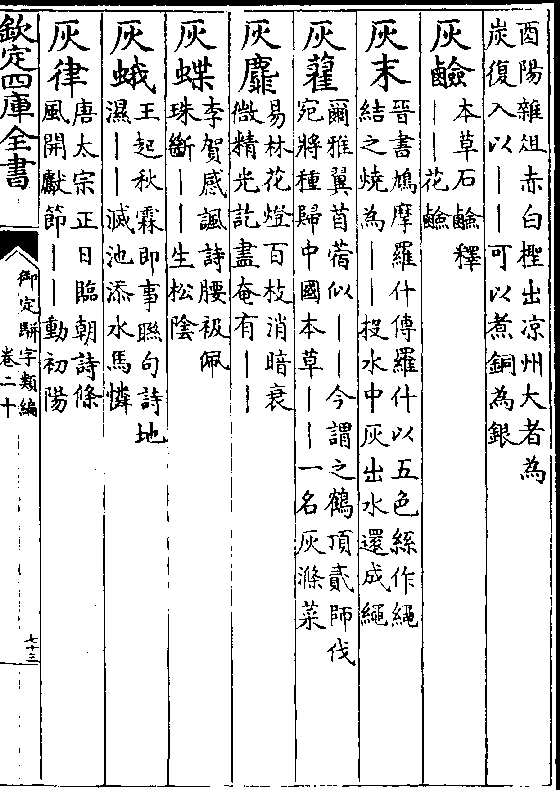 酉陽雜俎赤白檉出凉州大者為
炭復入以丨丨可以煮銅為銀
灰鹼
本草石鹼釋
丨丨花鹼
灰末
晉書鳩摩羅什傳羅什以五色絲作繩
結之燒為丨丨投水中灰出水還成繩
灰藋
爾雅翼苜蓿似丨丨今謂之鶴頂貳師伐
宛將種歸中國本草丨丨一名灰滌菜
灰靡
易林花燈百枝消暗衰
微精光訖盡奄有丨丨
灰蝶
李賀感諷詩腰衱佩
珠斷丨丨生松陰
灰蛾
王起秋霖即事聯句詩地
濕丨丨滅池添水馬憐
灰律
唐太宗正日臨朝詩條
風開獻節丨丨動初陽
欽定四庫全書
御定駢字類編
卷二十
七十三